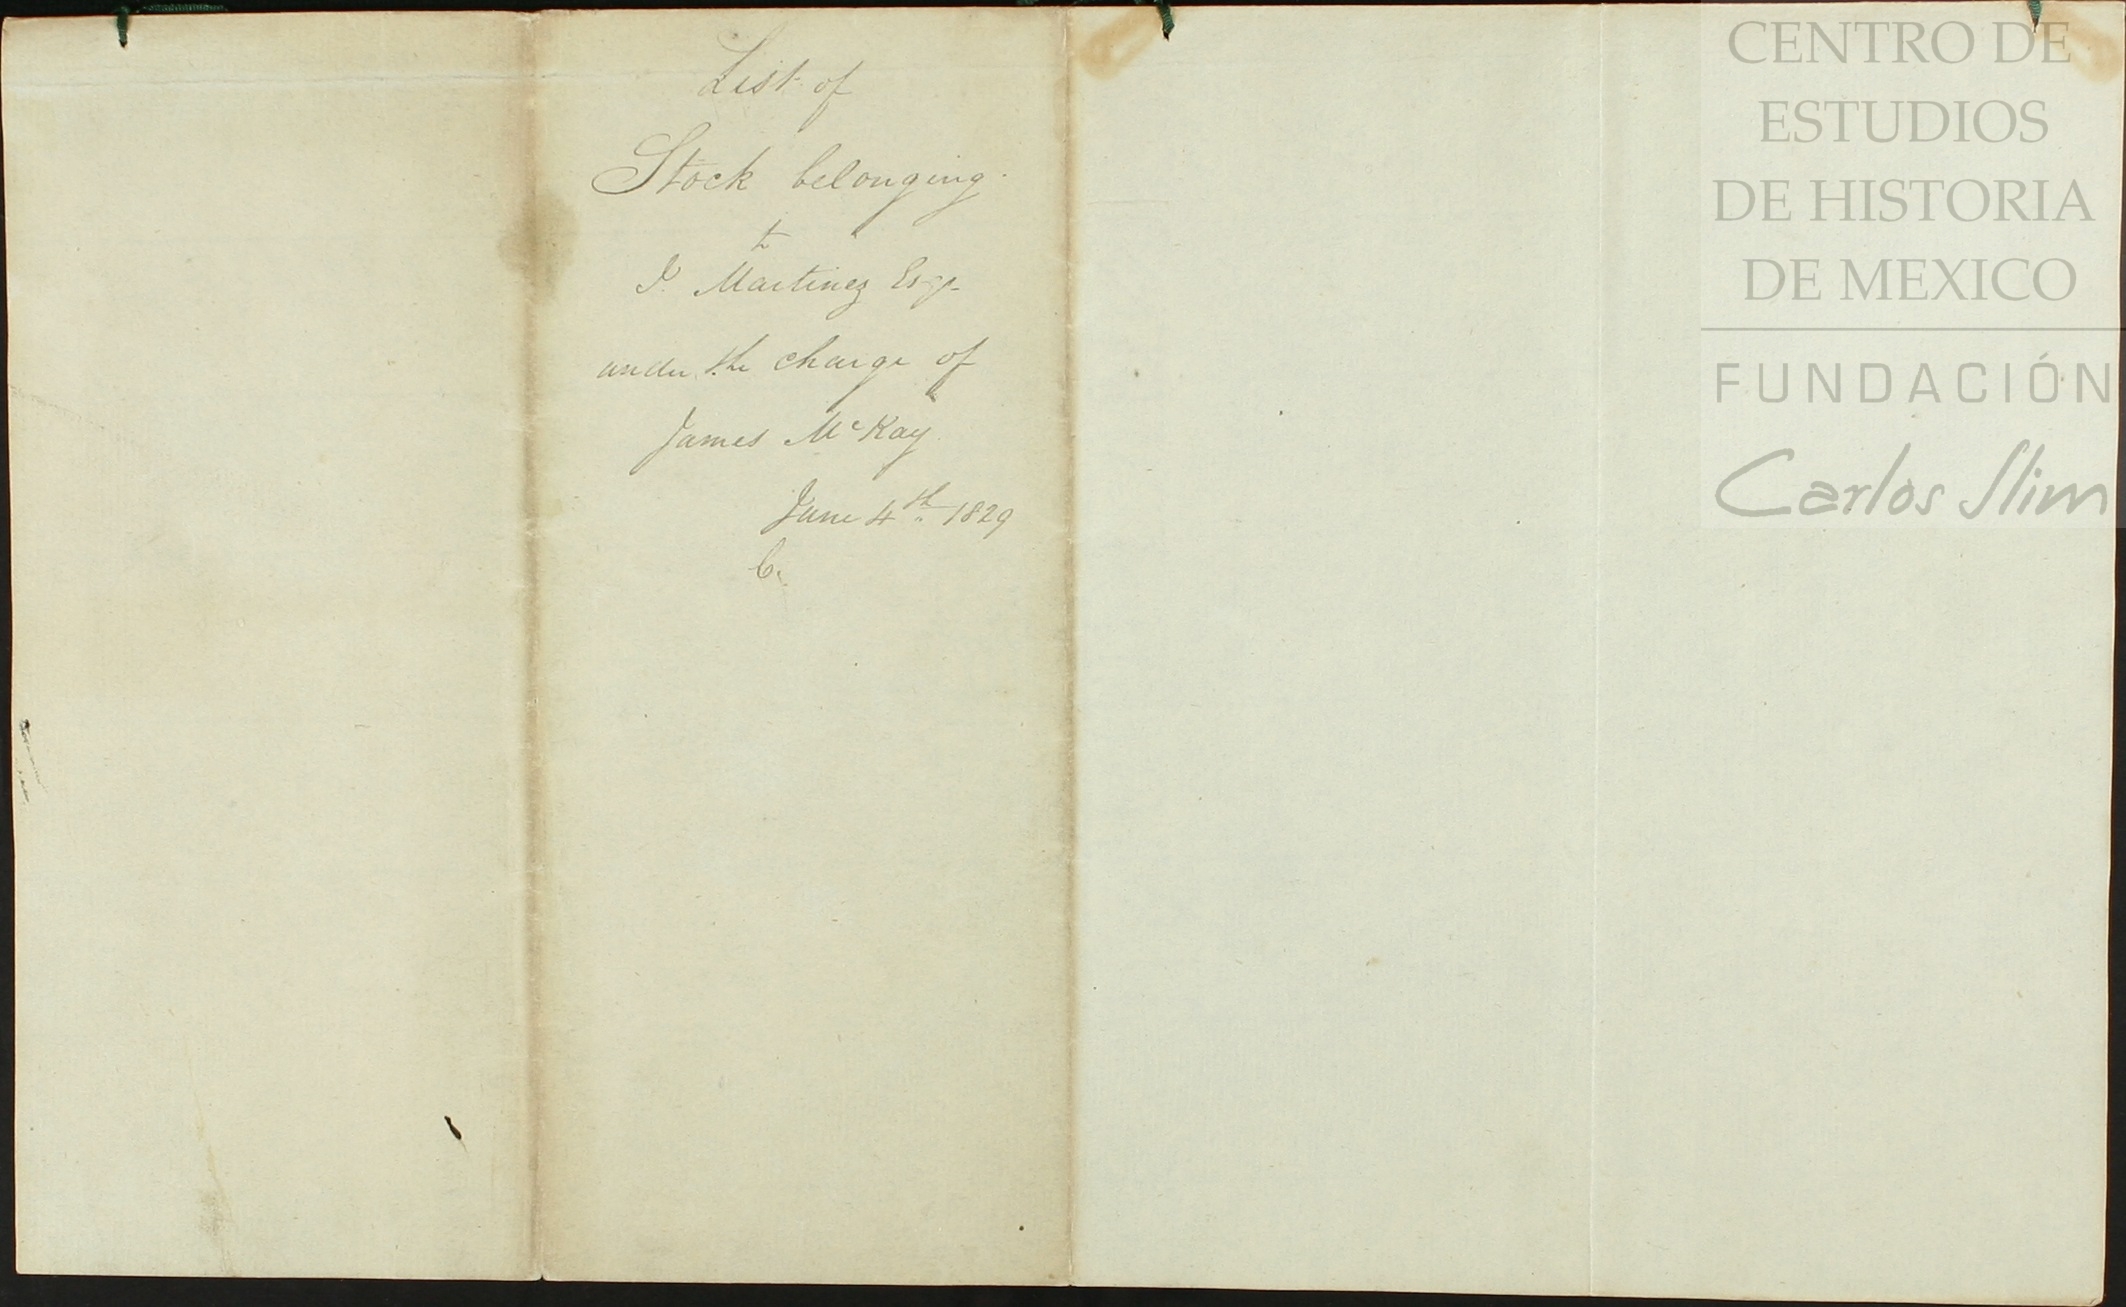 List of
Stock belonging
to
J. Martinez Esqr
under the charge of
James McKay
June 4th 1829
C.
CENTRO DE
ESTUDIOS
DE HISTORIA
DE MEXICO
FUNDACIÓN
Carlos Slim